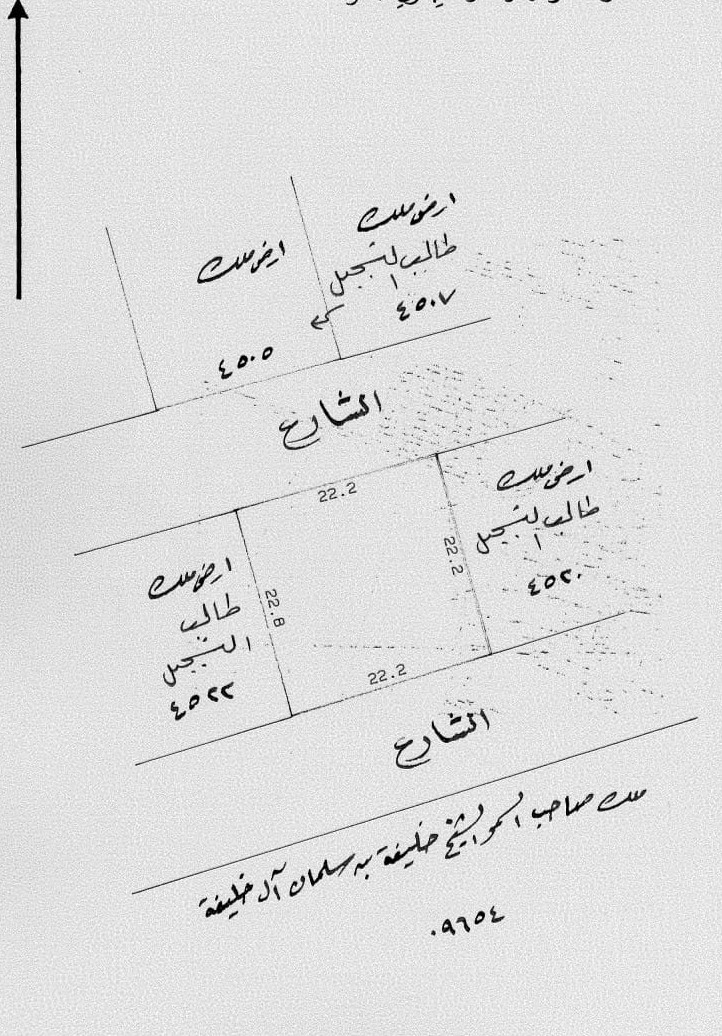 ارض ملك
طالب التسجيل
٤٥٠٧
ارض ملك
٤٥٠٥
الشارع
22.2
ارض ملك
طالب التسجيل
٤٥٢٠
22.2
22.8
ارض ملك
طالب
التسجيل
٤٥٢٢
22.2
الشارع
ملك صاحب السمو الشيخ خليفة بن سلمان آل خليفة
٠٩٦٥٤